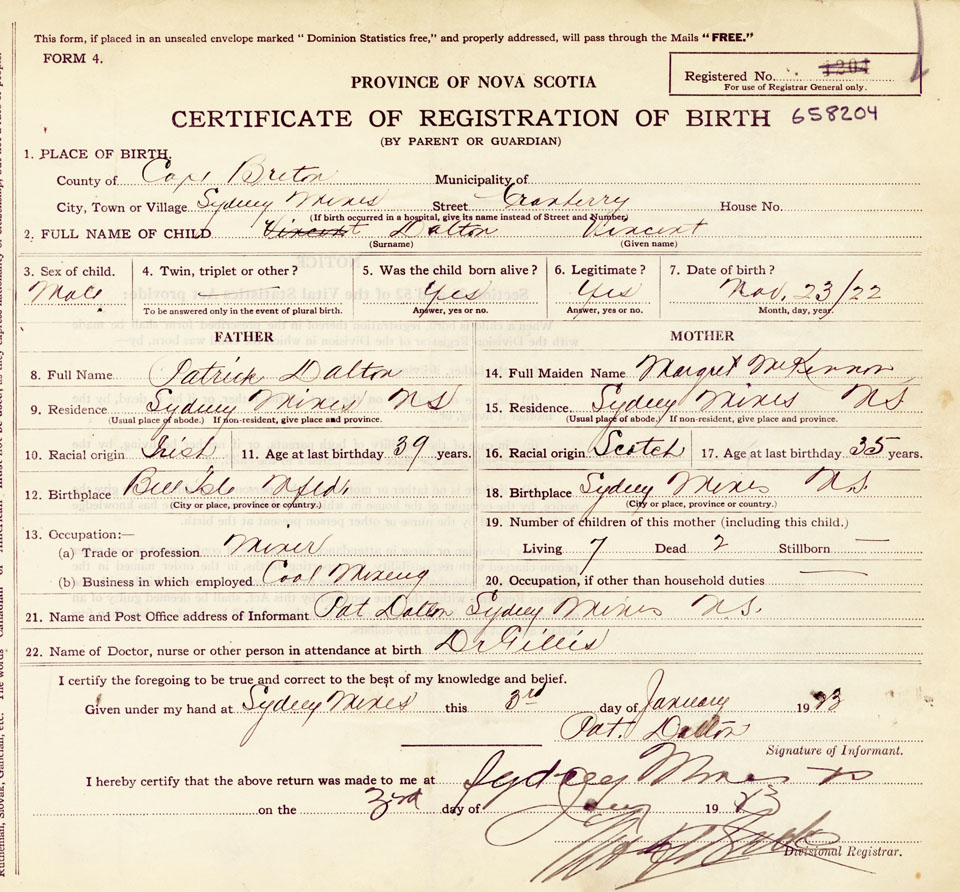 This form, if placed in an unsealed envelope marked "Dominion Statistics free," and properly addressed, will pass through the Mails "FREE."
FORM 4.
Registered No. 1204
For use of Registrar General only.
PROVINCE OF NOVA SCOTIA
CERTIFICATE OF REGISTRATION OF BIRTH 658204
(BY PARENT OR GUARDIAN)
1. PLACE OF BIRTH.
County of Cape Breton Municipality of
City, Town or Village Sydney Mines Street Cranberry House No.
(If birth occurred in a hospital, give its name instead of Street and Number)
2. FULL NAME OF CHILD Vincent Dalton Vincent
(Surname) (Given name)
3. Sex of child. 4. Twin, triplet or other? 5. Was the child born alive? 6. Legitimate? 7. Date of birth?
Male — Yes Yes Nov. 23/22
To be answered only in the event of plural birth. Answer, yes or no. Answer, yes or no. Month, day, year.
FATHER MOTHER
8. Full Name Patrick Dalton 14. Full Maiden Name Margret McKinnon
9. Residence Sydney Mines NS 15. Residence Sydney Mines NS
(Usual place of abode.) If non-resident, give place and province. (Usual place of abode.) If non-resident, give place and province.
10. Racial origin Irish 11. Age at last birthday 39 years. 16. Racial origin Scotch 17. Age at last birthday 35 years.
12. Birthplace Bell Isle Nfld. 18. Birthplace Sydney Mines N.S.
(City or place, province or country.) (City or place, province or country.)
13. Occupation:— 19. Number of children of this mother (including this child.)
(a) Trade or profession Miner Living 7 Dead 2 Stillborn —
(b) Business in which employed Coal Mining 20. Occupation, if other than household duties —
21. Name and Post Office address of Informant Pat Dalton Sydney Mines N.S.
22. Name of Doctor, nurse or other person in attendance at birth Dr Gillis
I certify the foregoing to be true and correct to the best of my knowledge and belief.
Given under my hand at Sydney Mines this 3rd day of January 1923
Pat. Dalton
Signature of Informant.
I hereby certify that the above return was made to me at Sydney Mines
on the 3rd day of Jany 1923
Divisional Registrar.